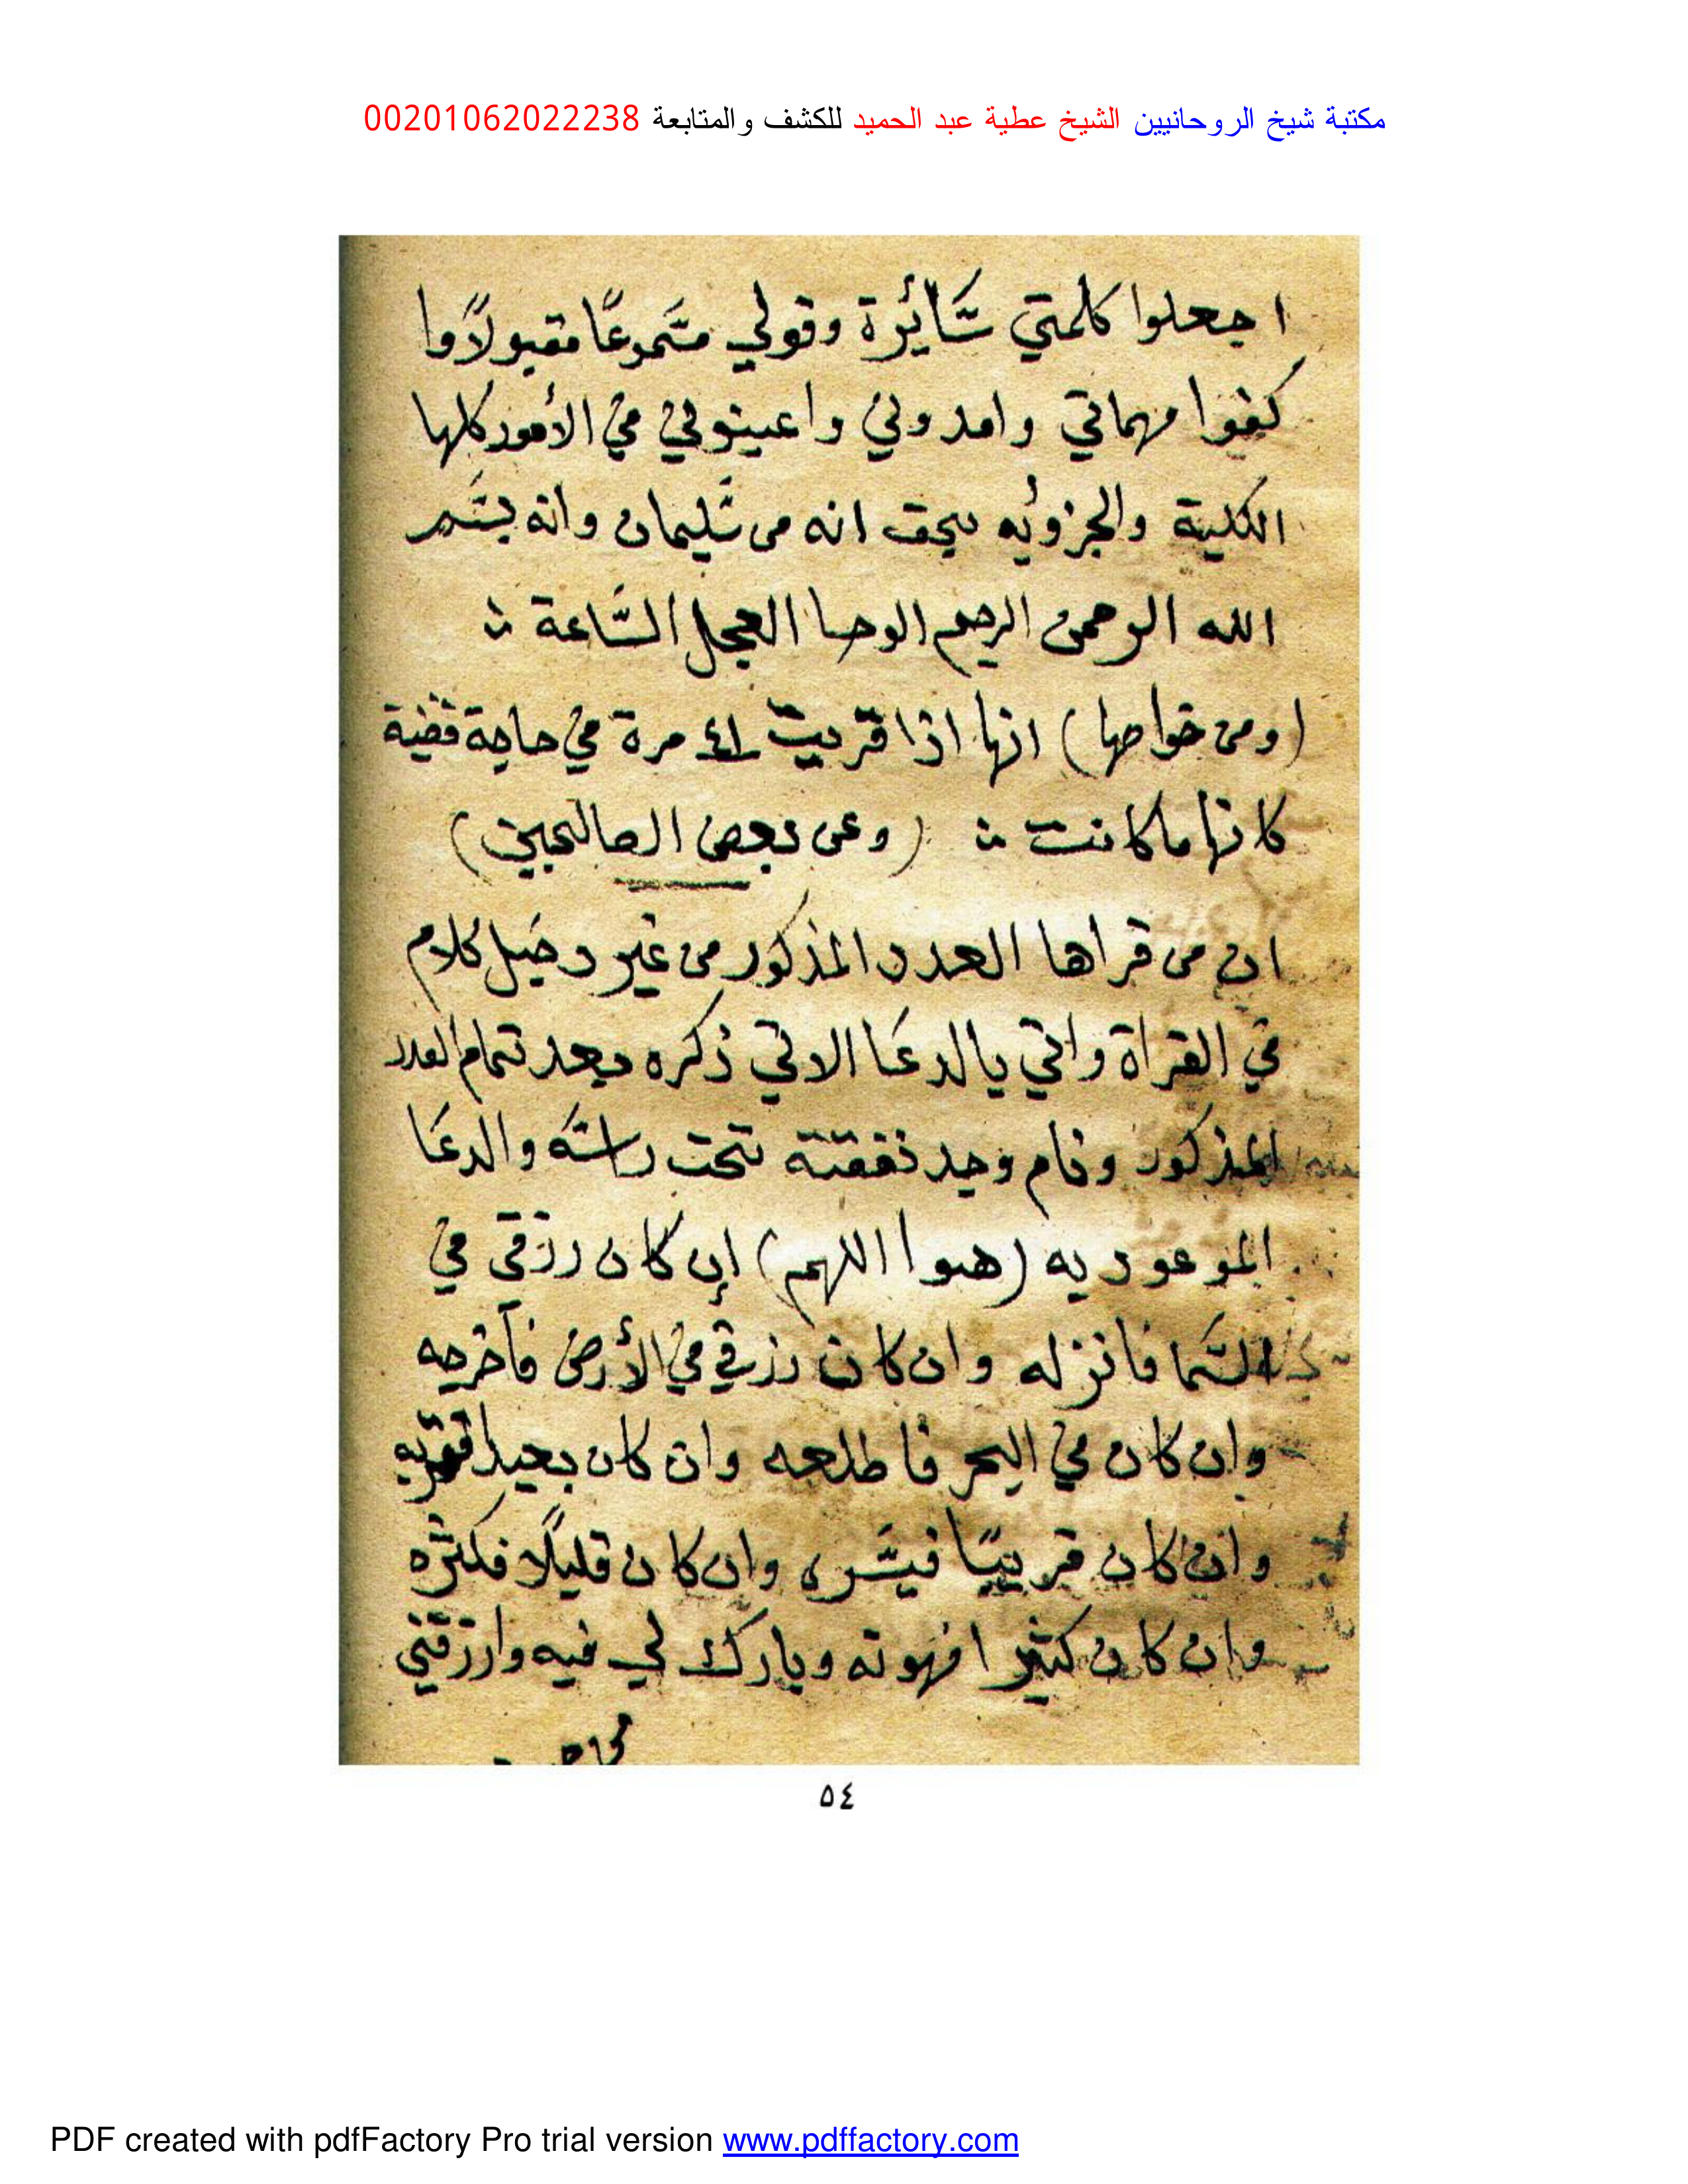 مكتبة شيخ الروحانيين الشيخ عطية عبد الحميد للكشف والمتابعة 00201062022238
اجعلوا كلمتي سَائرة وقولي مسَموعًا مقبولًا وا
كفوا مهماتي وامدوني واعينوني في الأمور كلها
الكلية والجزويه بحق انه من سَليمان وانه بسَم
الله الرحمن الرحيم الوحا العجل السَّاعة
(ومن خواصها) انها اذا قريت ٤١ مرة في حاجة قضية
كانها ما كانت (وعن بعض الصالحين)
ان من قراها العدد المذكور من غير دخيل كلام
في القراة واتي بالدعَا الاتي ذكره بعد تمام العدد
المذكور ونام وجد نفقته تحت راسَه والدعَا
الموعود به (هوا اللهم) إن كان رزقي في
السَّما فانزله وان كان رزقي في الأرض فأخرجه
وان كان في البحر فاطلعه وان كان بعيدا فقربه
وان كان قريبًا فيسَّره وان كان قليلًا فكثره
وان كان كثير افهونه وبارك لي فيه وارزقني
٥٤
PDF created with pdfFactory Pro trial version www.pdffactory.com